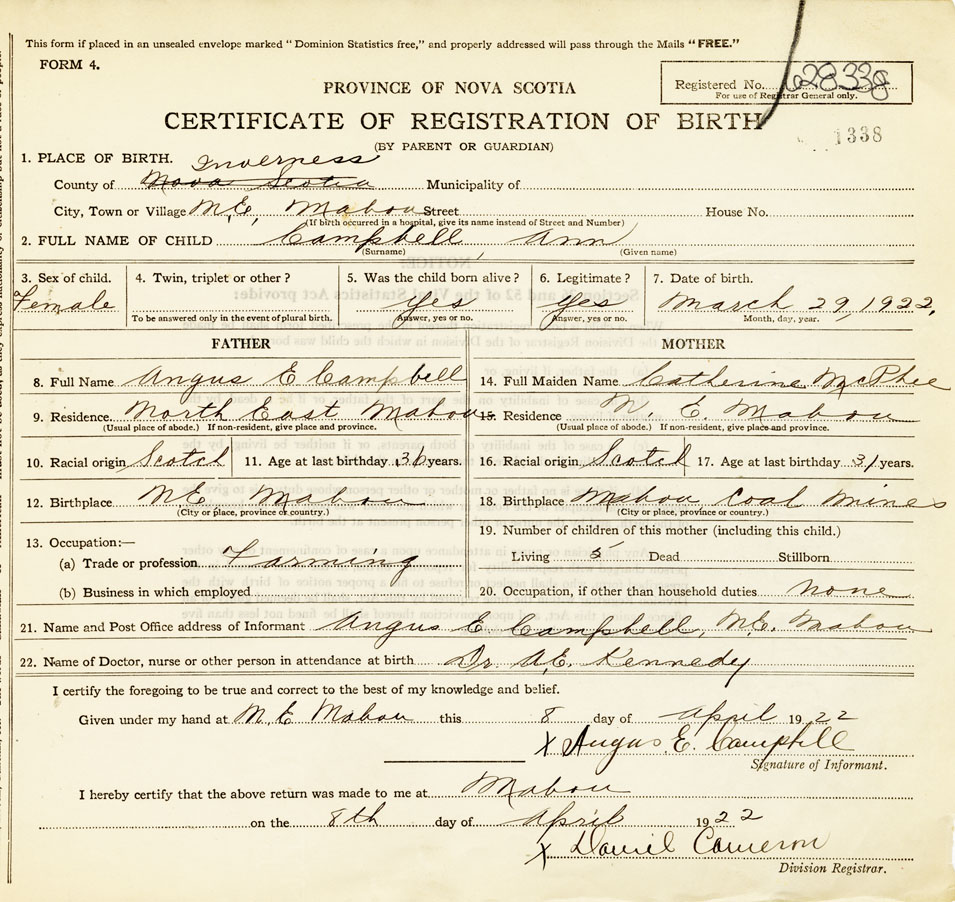 This form if placed in an unsealed envelope marked "Dominion Statistics free," and properly addressed will pass through the Mails "FREE."
FORM 4.
Registered No. 628338
For use of Registrar General only.
PROVINCE OF NOVA SCOTIA
CERTIFICATE OF REGISTRATION OF BIRTH
1338
(BY PARENT OR GUARDIAN)
1. PLACE OF BIRTH. Inverness
County of Nova Scotia Municipality of
City, Town or Village N.E. Mabou Street House No.
(If birth occurred in a hospital, give its name instead of Street and Number)
2. FULL NAME OF CHILD Campbell, Ann
(Surname) (Given name)
3. Sex of child. 4. Twin, triplet or other? 5. Was the child born alive? 6. Legitimate? 7. Date of birth.
Female yes yes March 29, 1922.
To be answered only in the event of plural birth. Answer, yes or no. Answer, yes or no. Month, day, year.
FATHER MOTHER
8. Full Name Angus E Campbell 14. Full Maiden Name Catherine McPhee
9. Residence. North East Mabou 15. Residence N. E. Mabou
(Usual place of abode.) If non-resident, give place and province. (Usual place of abode.) If non-resident, give place and province.
10. Racial origin Scotch 11. Age at last birthday 36 years. 16. Racial origin Scotch 17. Age at last birthday 31 years.
12. Birthplace N.E. Mabou 18. Birthplace Mabou Coal Mines
(City or place, province or country.) (City or place, province or country.)
19. Number of children of this mother (including this child.)
13. Occupation:—
Living 5 Dead Stillborn
(a) Trade or profession Farming
(b) Business in which employed 20. Occupation, if other than household duties none
21. Name and Post Office address of Informant Angus E Campbell, N.E. Mabou
22. Name of Doctor, nurse or other person in attendance at birth Dr. A.E. Kennedy
I certify the foregoing to be true and correct to the best of my knowledge and belief.
Given under my hand at N.E Mabou this 8 day of April 1922
X Angus. E. Campbell
Signature of Informant.
I hereby certify that the above return was made to me at Mabou
on the 8th day of April 1922
X Daniel Cameron
Division Registrar.